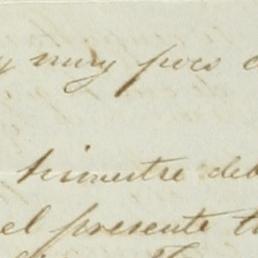 y muy pocs
trimestre deb
el presente t